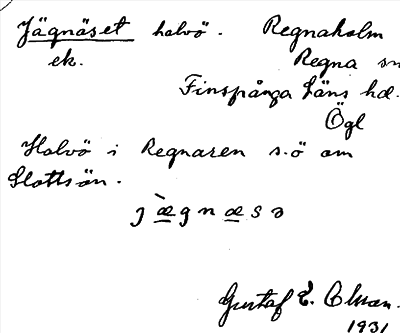 Jägnäset halvö. Regnaholm
ek. Regna sn
Finspånga läns hd.
Ögl
Halvö i Regnaren s.ö om
Slottsön.
j æ̀ g n æ s ə
Gustaf E.
1931